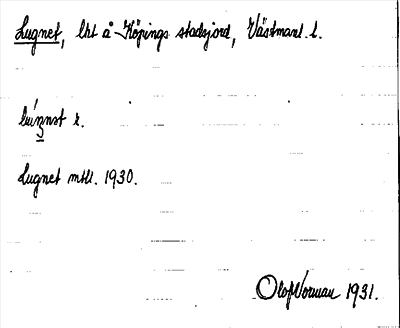 Lugnet, lht å Köpings stadsjord, Västmanl. l.
r.
Lugnet mtl. 1930.
Olof Norman 1931.